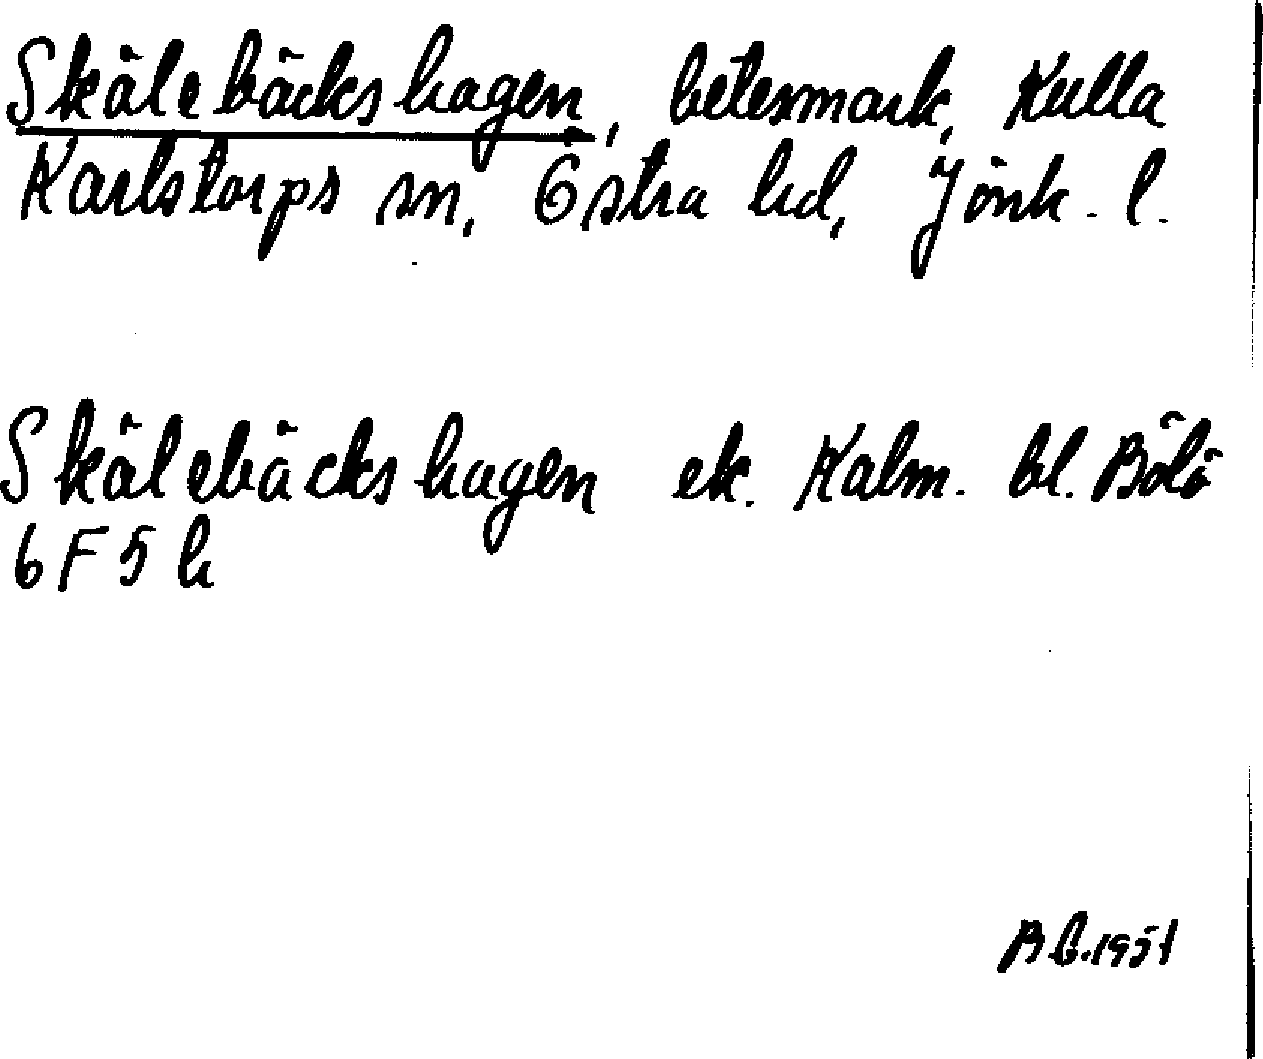 Skälebäckshagen, betesmark, Kulla
Karlstorps sn, Östra hd, Jönk. l.
Skälebäckshagen ek. Kalm. bl. Bölö
6 F 5 h
B G. 1951